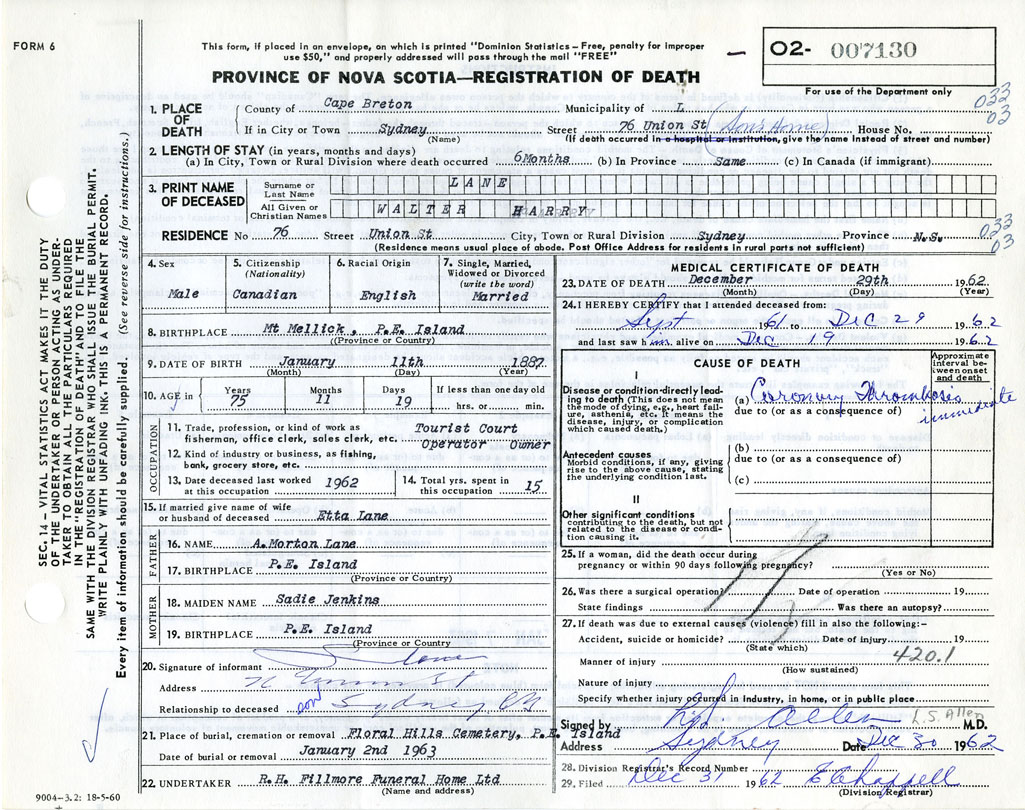 FORM 6
This form, if placed in an envelope, on which is printed "Dominion Statistics – Free, penalty for improper
use $50," and properly addressed will pass through the mail "FREE"
PROVINCE OF NOVA SCOTIA—REGISTRATION OF DEATH
O2- 007130
For use of the Department only
1. PLACE OF DEATH
County of Cape Breton Municipality of L 033 03
If in City or Town Sydney Street 76 Union St Son's Home House No.
(Name) (If death occurred in a hospital or institution, give the name instead of street and number)
2. LENGTH OF STAY (in years, months and days)
(a) In City, Town or Rural Division where death occurred 6Months (b) In Province Same (c) In Canada (if immigrant)
3. PRINT NAME OF DECEASED
Surname or Last Name LANE
All Given or Christian Names WALTER HARRY
RESIDENCE No 76 Street Union St City, Town or Rural Division Sydney Province N.S. 033 03
(Residence means usual place of abode. Post Office Address for residents in rural parts not sufficient)
4. Sex
Male
5. Citizenship (Nationality)
Canadian
6. Racial Origin
English
7. Single, Married, Widowed or Divorced (write the word)
Married
8. BIRTHPLACE Mt Mellick, P.E. Island
(Province or Country)
9. DATE OF BIRTH January 11th 1887
(Month) (Day) (Year)
10. AGE in Years 75 Months 11 Days 19 If less than one day old hrs. or min.
OCCUPATION
11. Trade, profession, or kind of work as fisherman, office clerk, sales clerk, etc. Tourist Court Operator Owner
12. Kind of industry or business, as fishing, bank, grocery store, etc.
13. Date deceased last worked at this occupation 1962
14. Total yrs. spent in this occupation 15
15. If married give name of wife or husband of deceased Etta Lane
FATHER
16. NAME A.Morton Lane
17. BIRTHPLACE P.E. Island
(Province or Country)
MOTHER
18. MAIDEN NAME Sadie Jenkins
19. BIRTHPLACE P.E. Island
(Province or Country
20. Signature of informant Lane
Address 76 Union St
Relationship to deceased son Sydney
21. Place of burial, cremation or removal Floral Hills Cemetery, P.E. Island
Date of burial or removal January 2nd 1963
22. UNDERTAKER R.H. Fillmore Funeral Home Ltd
(Name and address)
9004-3.2: 18-5-60
MEDICAL CERTIFICATE OF DEATH
23. DATE OF DEATH December 29th 1962
(Month) (Day) (Year)
24. I HEREBY CERTIFY that I attended deceased from:
Sept 1961 to Dec 29 1962
and last saw him alive on Dec 19 1962
CAUSE OF DEATH
Approximate interval between onset and death
I
Disease or condition directly leading to death (This does not mean the mode of dying, e.g., heart failure, asthenia, etc. It means the disease, injury, or complication which caused death.)
(a) Coronary Thrombosis immediate
due to (or as a consequence of)
Antecedent causes
Morbid conditions, if any, giving rise to the above cause, stating the underlying condition last.
(b)
due to (or as a consequence of)
(c)
II
Other significant conditions contributing to the death, but not related to the disease or condition causing it.
25. If a woman, did the death occur during pregnancy or within 90 days following pregnancy?
(Yes or No)
26. Was there a surgical operation? Date of operation 19
State findings Was there an autopsy?
27. If death was due to external causes (violence) fill in also the following:-
Accident, suicide or homicide? Date of injury 19
(State which)
420.1
Manner of injury
(How sustained)
Nature of injury
Specify whether injury occurred in industry, in home, or in public place
Signed by Allen L.S. Allen M.D.
Address Sydney Date Dec 30 1962
28. Division Registrar's Record Number
29. Filed Dec 31 1962 E Chappell
(Division Registrar)
SEC. 14 – VITAL STATISTICS ACT MAKES IT THE DUTY
OF THE UNDERTAKER OR PERSON ACTING AS UNDER-
TAKER TO OBTAIN ALL THE PARTICULARS REQUIRED
IN THE "REGISTRATION OF DEATH" AND TO FILE THE
SAME WITH THE DIVISION REGISTRAR WHO SHALL ISSUE THE BURIAL PERMIT.
WRITE PLAINLY WITH UNFADING INK. THIS IS A PERMANENT RECORD.
Every item of information should be carefully supplied. (See reverse side for instructions.)